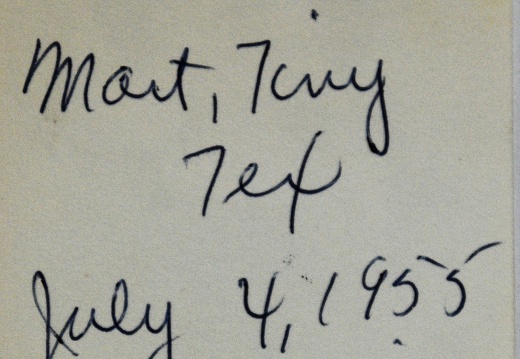 Mart, Tiny
Tex
July 4, 1955